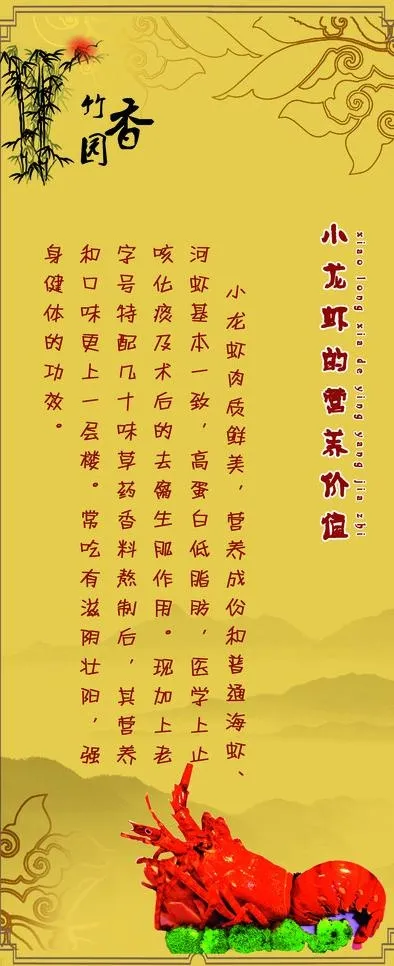 竹园
香
小龙虾的营养价值
xiao long xia de ying yang jia zhi
小龙虾肉质鲜美，营养成份和普通海虾、
河虾基本一致，高蛋白低脂肪，医学上止
咳化痰及术后的去腐生肌作用。现加上老
字号特配几十味草药香料熬制后，其营养
和口味更上一层楼。常吃有滋阴壮阳，强
身健体的功效。